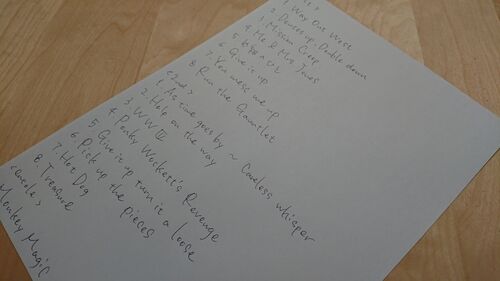 1 Way Out West
2 Deuces up - Double down
3 Mission Creep
4 Me & Mrs Jones
5
6 Give it up
7 You mess me up
8 Run the Gauntlet
<2nd>
1 As time goes by ~ Careless whisper
2 Help on the way
3 WW III
4 Ponky Weckett's Revenge
5 Give it up turn it a loose
6 Pick up the pieces
7 Hot Dog
8 Treasure
<encole>
Monkey Magic